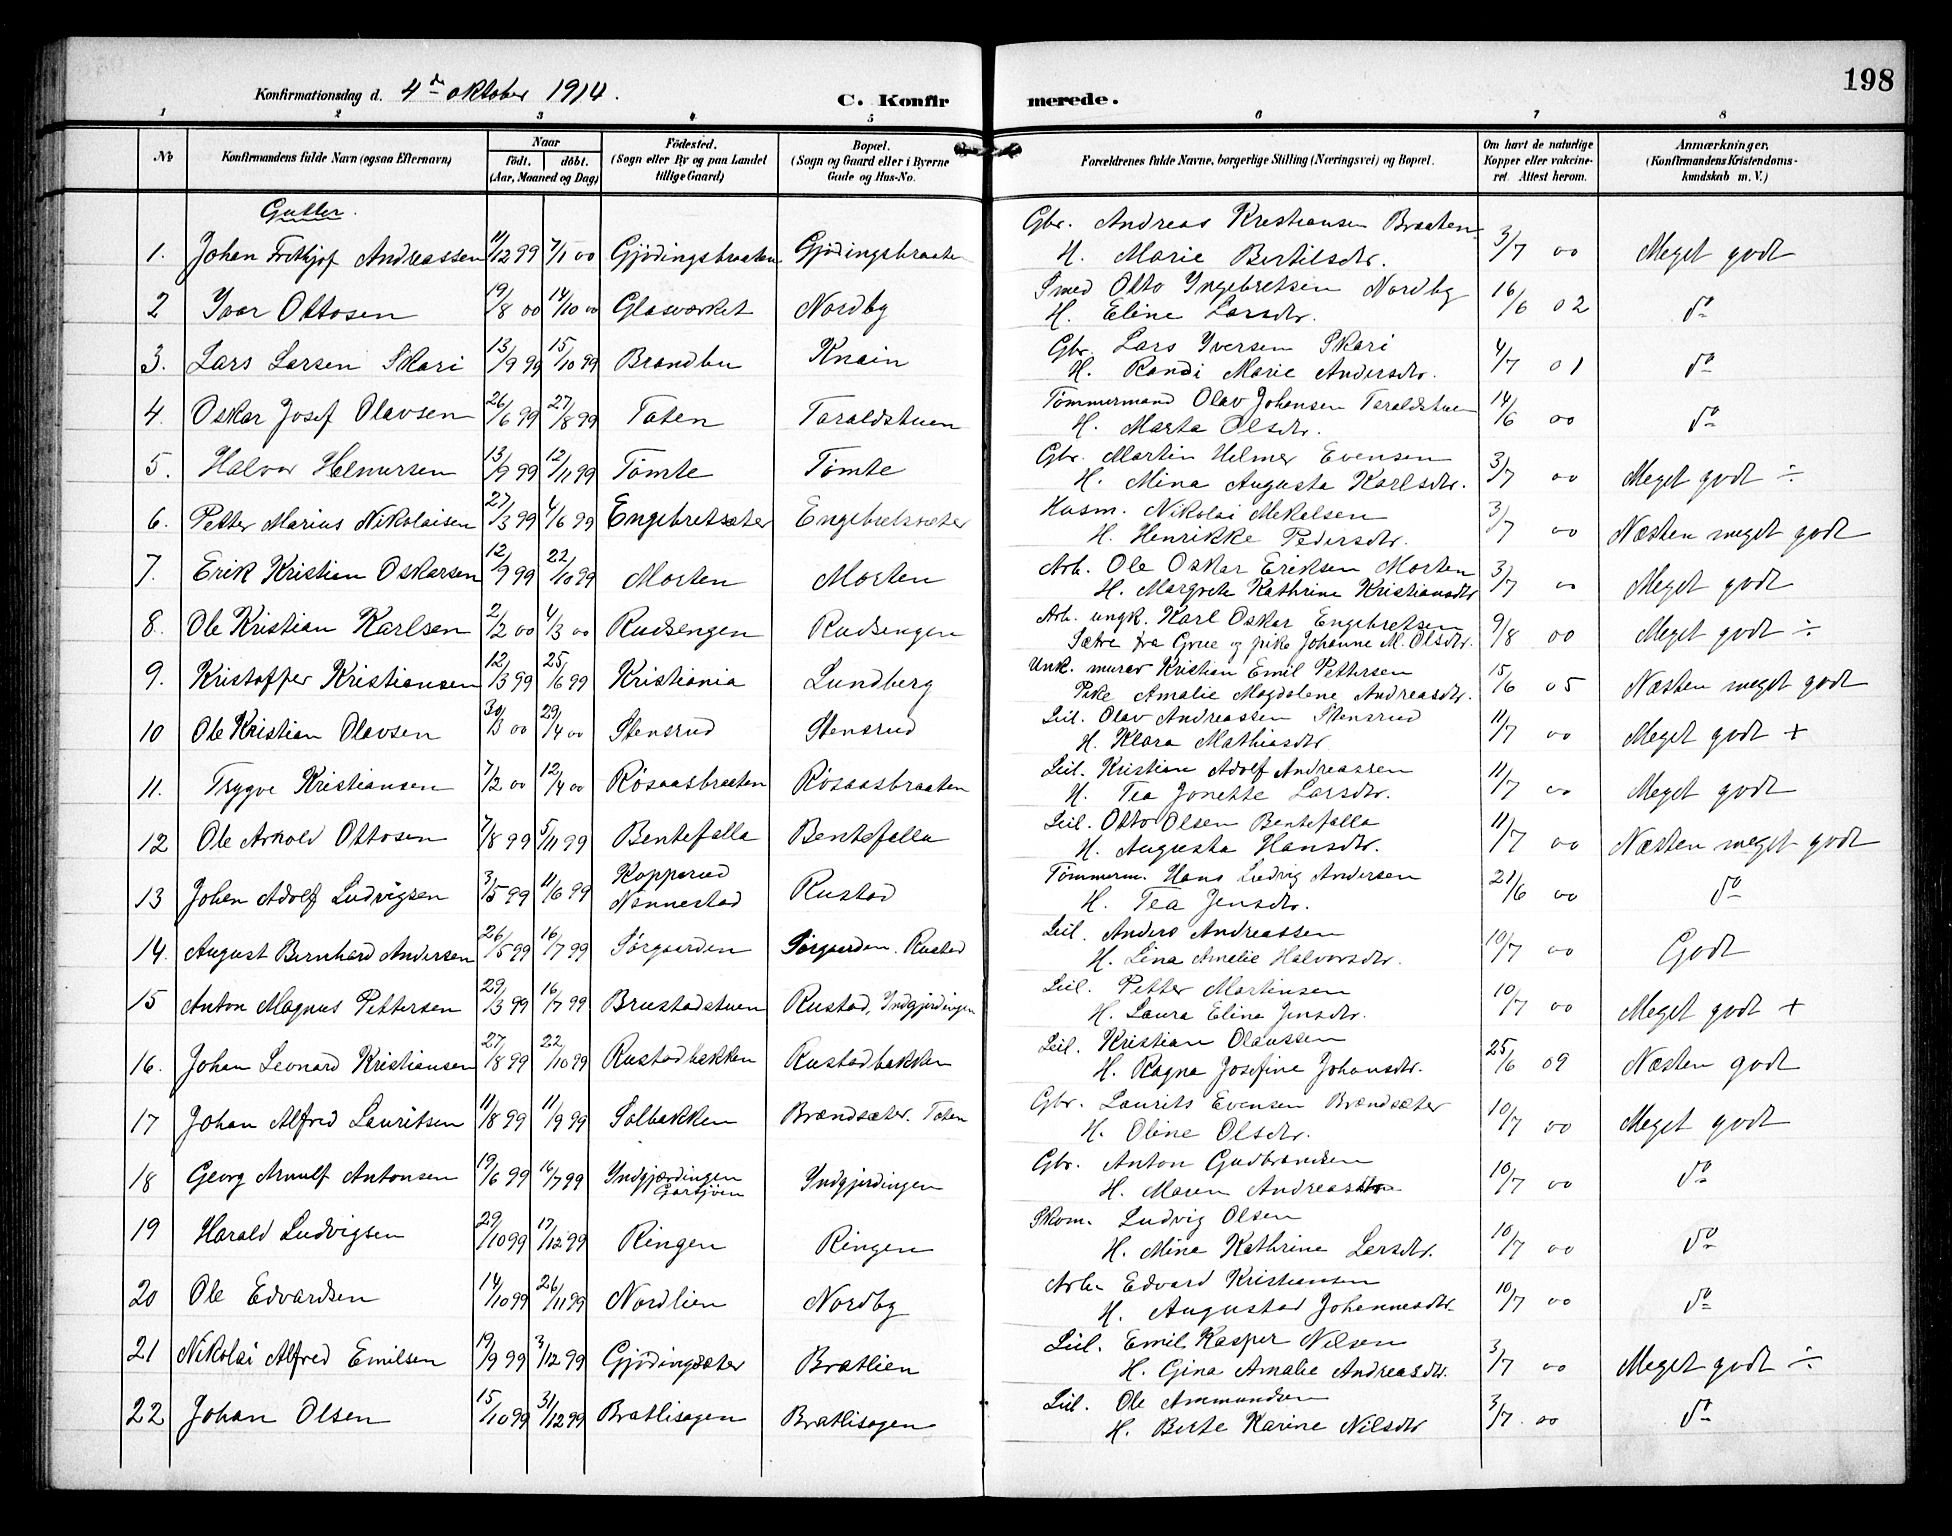 198
Konfirmationsdag d. 4de oktober 1914.
C. Konfirmerede.
1 2 3 4 5 6 7 8
No
Konfirmandens fulde Navn (ogsaa Efternavn)
Naar
födt. döbt.
(Aar, Maaned og Dag)
Födested.
(Sogn eller By og paa Landet
tillige Gaard)
Bopæl.
(Sogn og Gaard eller i Byerne
Gade og Hus-No.
Forældrenes fulde Navne, borgerlige Stilling (Næringsvei) og Bopæl.
Om havt de naturlige
Kopper eller vakcine-
ret. Attest herom.
Anmærkninger,
(Konfirmandens Kristendoms-
kundskab m. V.)
Gutter.
1. Johan Frithjof Andreassen 11/12 99 7/1 00 Gjødingsbraaten Gjødingsbraaten Gbr. Andreas Kristiansen Braaten 3/7 00 Meget godt
H. Marie Bertilsdtr.
2 Ivar Ottosen 19/8 00 14/10 00 Glasværket Nordby Smed Otto Ingebretsen Nordby 16/6 02 do
H. Eline Larsdtr.
3. Lars Larsen Skari 13/9 99 15/10 99 Brandbu Knain Gbr. Lars Iversen Skari 4/7 01 do
H. Randi Marie Andersdtr.
4. Oskar Josef Olavsen 26/6 99 27/8 99 Toten Taraldstuen Tømmermand Olav Johansen Taraldstuen 14/6 00 do
H. Marta Olsdtr.
5. Halvor Helmersen 13/9 99 12/11 99 Tømte Tømte Gbr. Martin Helmer Evensen 3/7 00 Meget godt ÷
H. Mina Augusta Karlsdtr.
6. Petter Marius Nikolaisen 27/3 99 4/6 99 Engebretsæter Engebretsæter Husm. Nikolai Mekalsen 3/7 00 Næsten meget godt
H. Henrikke Pedersdtr.
7. Erik Kristian Oskarsen 12/9 99 22/10 99 Morten Morten Arb. Ole Oskar Eriksen Morten 3/7 00 Meget godt
H. Margrete Kathrine Kristiansdtr
8. Ole Kristian Karlsen 2/2 00 4/3 00 Rudsengen Rudsengen Arb. ungk. Karl Oskar Engebretsen 9/8 00 Meget godt ÷
Sætre fra Grue og pike Johanne M. Olsdtr.
9. Kristoffer Kristiansen 12/3 99 25/6 99 Kristiania Lundberg Unk. murer Kristian Emil Pettersen 15/6 05 Næsten meget godt
Pike Amalie Magdalene Andreasdtr.
10 Ole Kristian Olavsen 30/3 00 29/4 00 Stensrud Stensrud Leil. Olav Andreassen Stensrud 11/7 00 Meget godt +
H. Klara Mathiasdtr
11. Trygve Kristiansen 7/2 00 12/4 00 Røsaasbraaten Røsaasbraaten Leil. Kristian Adolf Andreassen 11/7 00 Meget godt
H. Tea Jonette Larsdtr.
12 Ole Arnold Ottosen 7/8 99 5/11 99 Bentefalla Bentefalla Leil. Otto Olsen Bentefalla 11/7 00 Næsten meget godt
H. Augusta Hansdtr.
13 Johan Adolf Ludvigsen 3/5 99 11/6 99 Kopperud Nannestad Rustad Tømmerm. Hans Ludvig Andersen 21/6 00 do
H. Tea Jensdtr.
14. August Bernhard Andersen 26/5 99 16/7 99 Sørgaarden Sørgaarden. Rustad Leil. Anders Andreassen 10/7 00 Godt
H. Lina Amelie Halvorsdtr.
15 Anton Magnus Pettersen 29/3 99 16/7 99 Brustadstuen Rustad, Indgjerdingen Leil. Petter Martinsen 10/7 00 Meget godt +
H. Laura Elina Jensdtr.
16. Johan Leonard Kristiansen 27/8 99 22/10 99 Rustadbakken Rustadbakken Leil. Kristian Olaussen 25/6 09 Næsten godt
H. Ragna Josefine Johansdtr.
17 Johan Alfred Lauritsen 11/8 99 11/9 99 Solbakken Brændsæter. Toten Gbr. Laurits Evensen Brændsæter 10/7 00 Meget godt
H. Oline Olsdtr.
18 Georg Arnulf Antonsen 19/6 99 16/7 99 Indgjærdingen Garsjøen Indgjerdingen Gbr. Anton Gudbrandsen 10/7 00 do
H. Maren Andreasdtr
19 Harald Ludvigsen 29/10 99 17/12 99 Ringen Ringen Skom. Ludvig Olsen 10/7 00 do
H. Mina Kathrine Larsdtr.
20 Ole Edvardsen 14/10 99 26/11 99 Nordlien Nordby Arb. Edvard Kristiansen 10/7 00 do
H. Augustad Johannesdtr.
21 Nikolai Alfred Emilsen 19/9 99 3/12 99 Gjødingsæter Bratlien Leil. Emil Kasper Nilsen 3/7 00 Meget godt ÷
H. Gina Amalie Andreasdtr.
22 Johan Olsen 15/10 99 31/12 99 Bratlisagen Bratlisagen Leil. Ole Ammundsen 3/7. 00 do
H. Berte Karine Nilsdtr